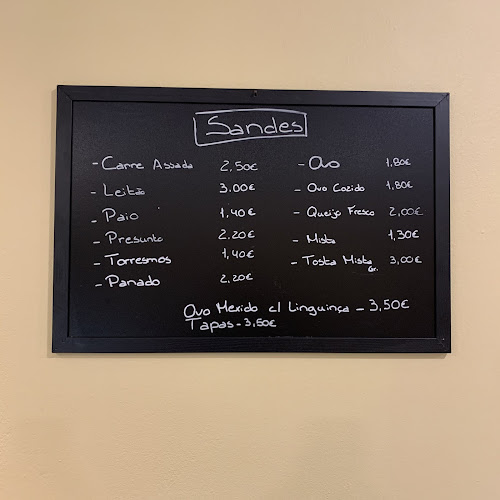 Sandes
- Carne Assada 2,50€
- Leitão 3,00€
- Paio 1,40€
- Presunto 2,20€
- Torresmos 1,40€
- Panado 2,20€
- Ovo 1,80€
- Ovo Cozido 1,80€
- Queijo Fresco 2,00€
- Mista 1,30€
- Tosta Mista Gr. 3,00€
Ovo Mexido c/ Linguinça - 3,50€
Tapas - 3,50€